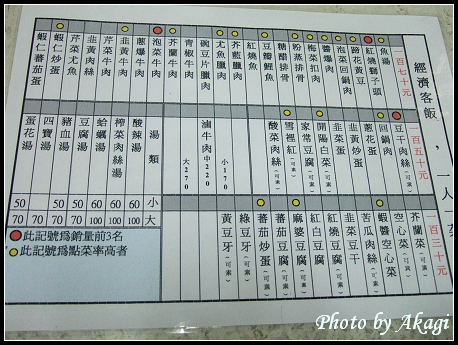 經濟客飯，一人一菜
一百七十元
魚湯
紅燒獅子頭
跳花黃豆
泡菜回鍋肉
醬爆肉
梅菜扣肉
粉蒸排骨
糖醋排骨
豆瓣鯉魚
紅燒魚
芥藍臘肉
尤魚臘肉
碗豆片臘肉
青椒牛肉
芥蘭牛肉
泡菜牛肉
蔥爆牛肉
韭黃牛肉
芹菜牛肉
韭黃肉絲
芹菜尤魚
蝦仁炒蛋
蝦仁蕃茄蛋
一百五十元
豆干肉絲(可素)
回鍋肉
蔥花蛋
韭黃炒蛋
韭菜蛋
開陽白菜(可素)
家常豆腐(可素)
雪裡紅(可素)
酸菜肉絲(可素)
滷牛肉
小170
中220
大270
湯類
小
大
酸辣湯
60
100
榨菜肉絲湯
60
100
蛤蠣湯
60
100
豆腐湯
50
70
豬血湯
50
70
四寶湯
50
70
蛋花湯
50
70
一百三十元
芥蘭菜(可素)
空心菜(可素)
蝦醬空心菜
苦瓜肉絲(可素)
韭菜豆干
紅燒豆腐(可素)
紅白豆腐
麻婆豆腐(可素)
蕃茄炒蛋(可素)
綠豆牙(可素)
黃豆牙(可素)
此記號為銷量前3名
此記號為點菜率高者
Photo by Akagi